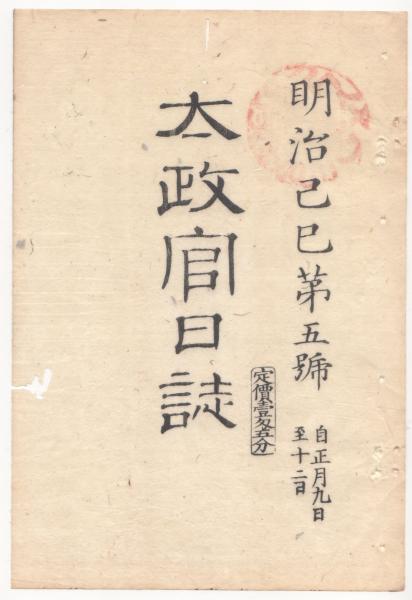 明治己巳第五號
自正月九日
至十二日
太政官日誌
定價壹匁五分